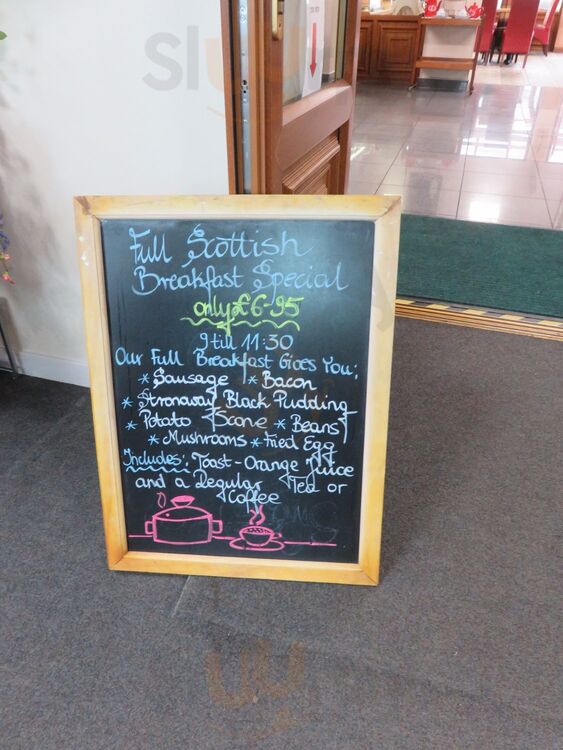 Full Scottish
Breakfast Special
only £6-95
9 till 11:30
Our Full Breakfast Gives You:
* Sausage * Bacon
* Stronaway Black Pudding
* Potato Scone * Beans
* Mushrooms * Fried Egg
Includes: Toast - Orange Juice
and a Regular Tea or
Coffee